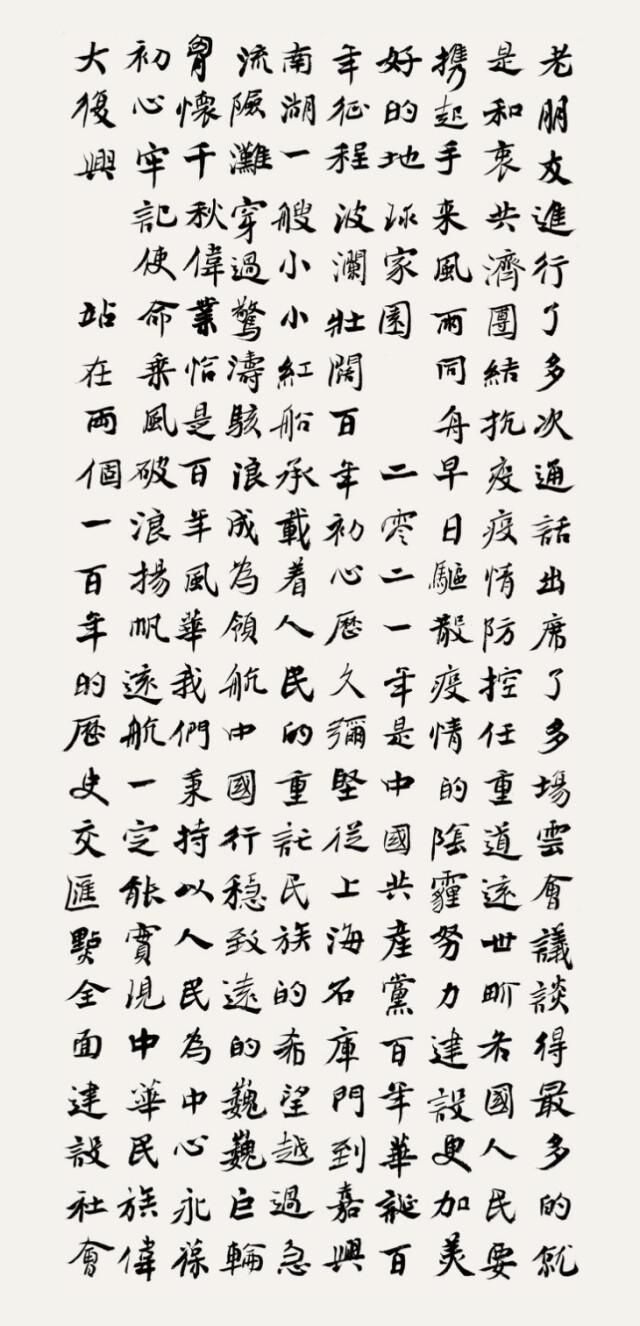 老朋友進行了多次通話出席了多場雲會議談得最多的就
是和衷共濟團結抗疫疫情防控任重道遠世界各國人民要
携起手来風雨同舟早日驅散疫情的陰霾努力建設更加美
好的地球家園 二零二一年是中國共產黨百年華誕百
年征程波瀾壯闊百年初心歷久彌堅從上海石庫門到嘉興
南湖一艘小小紅船承載着人民的重託民族的希望越過急
流險灘穿過驚濤駭浪成為領航中國行穩致遠的巍巍巨輪
胷懷千秋偉業恰是百年風華我們秉持以人民為中心永葆
初心牢記使命乘風破浪揚帆遠航一定能實現中華民族偉
大復興 站在兩個一百年的歷史交匯點全面建設社會